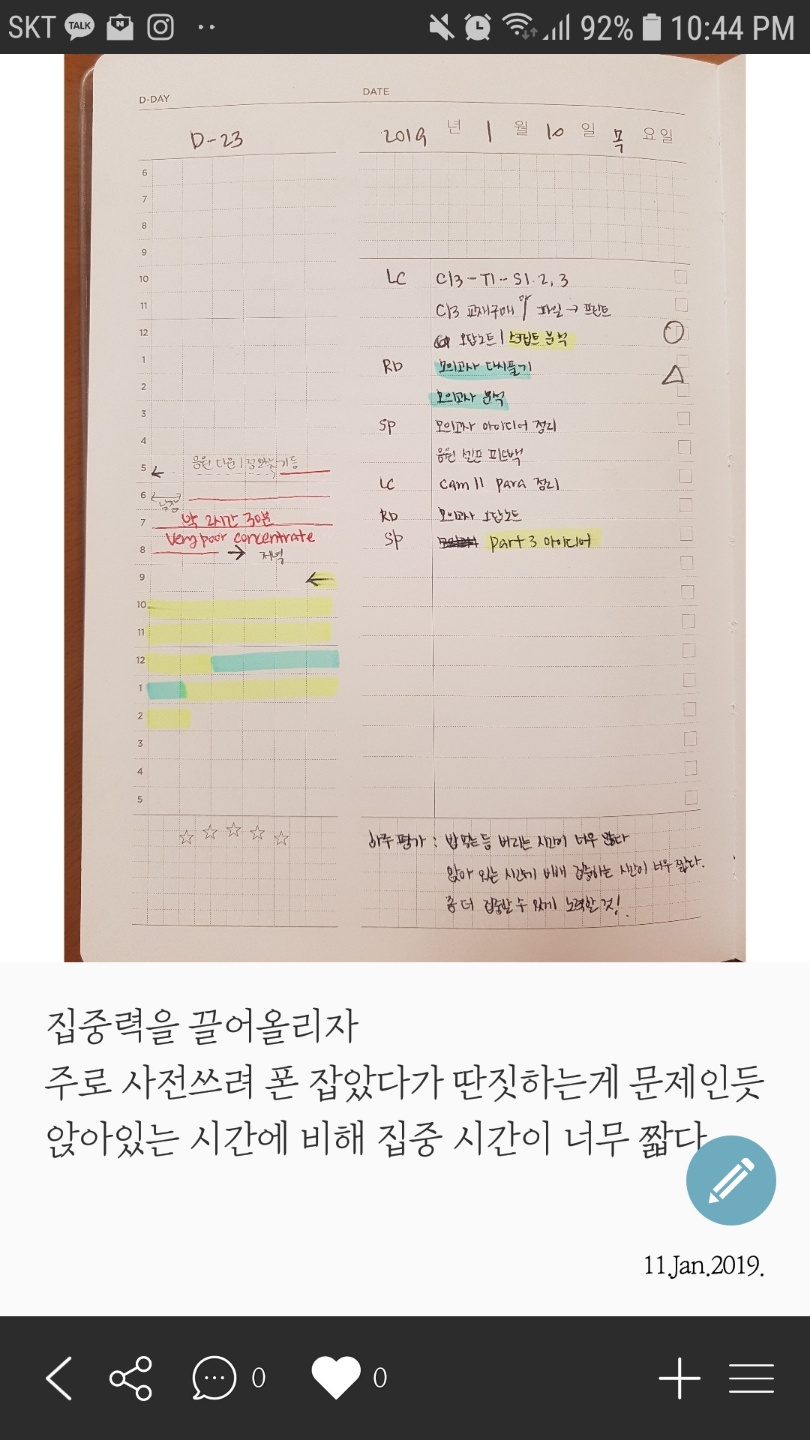 SKT TALK N 92% 10:44 PM
D-DAY
DATE
D-23
2019 년 1 월 10 일 목 요일
6
7
8
9
10
11
12
1
2
3
4
5
6
7
8
9
10
11
12
1
2
3
4
5
응원 다운 |
박 2시간 30분
Very poor concentrate
저녁
LC C13-T1-S1.2,3
C13 교재구매 or 파일 → 프린트
오답노트 | 스크립트 분석
RD 모의고사 다시풀기
모의고사 분석
SP 모의고사 아이디어 정리
응원 셀프 피드백
LC Cam 11 para 정리
RD 모의고사 오답노트
SP part 3 아이디어
하루 평가 : 밥 먹는 등 버리는 시간이 너무 많다
앉아 있는 시간에 비해 집중하는 시간이 너무 짧다.
좀 더 집중할 수 있게 노력할 것!
집중력을 끌어올리자
주로 사전쓰려 폰 잡았다가 딴짓하는게 문제인듯
앉아있는 시간에 비해 집중 시간이 너무 짧다
11.Jan.2019.
0 0